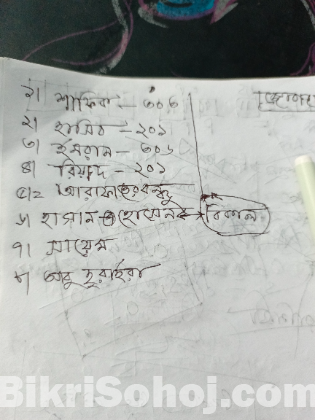 ১। শাকিব - ৩০৬
২। হাসিব - ২০১
৩। ইমরান - ৩০৬
৪। রিয়াদ - ২০১
৫। আরাফাতের বন্ধু
৬। হাসান ও হোসেন → বিকাল
৭। সায়েম
৮। আবু হুরাইরা
BikriSohoj.com